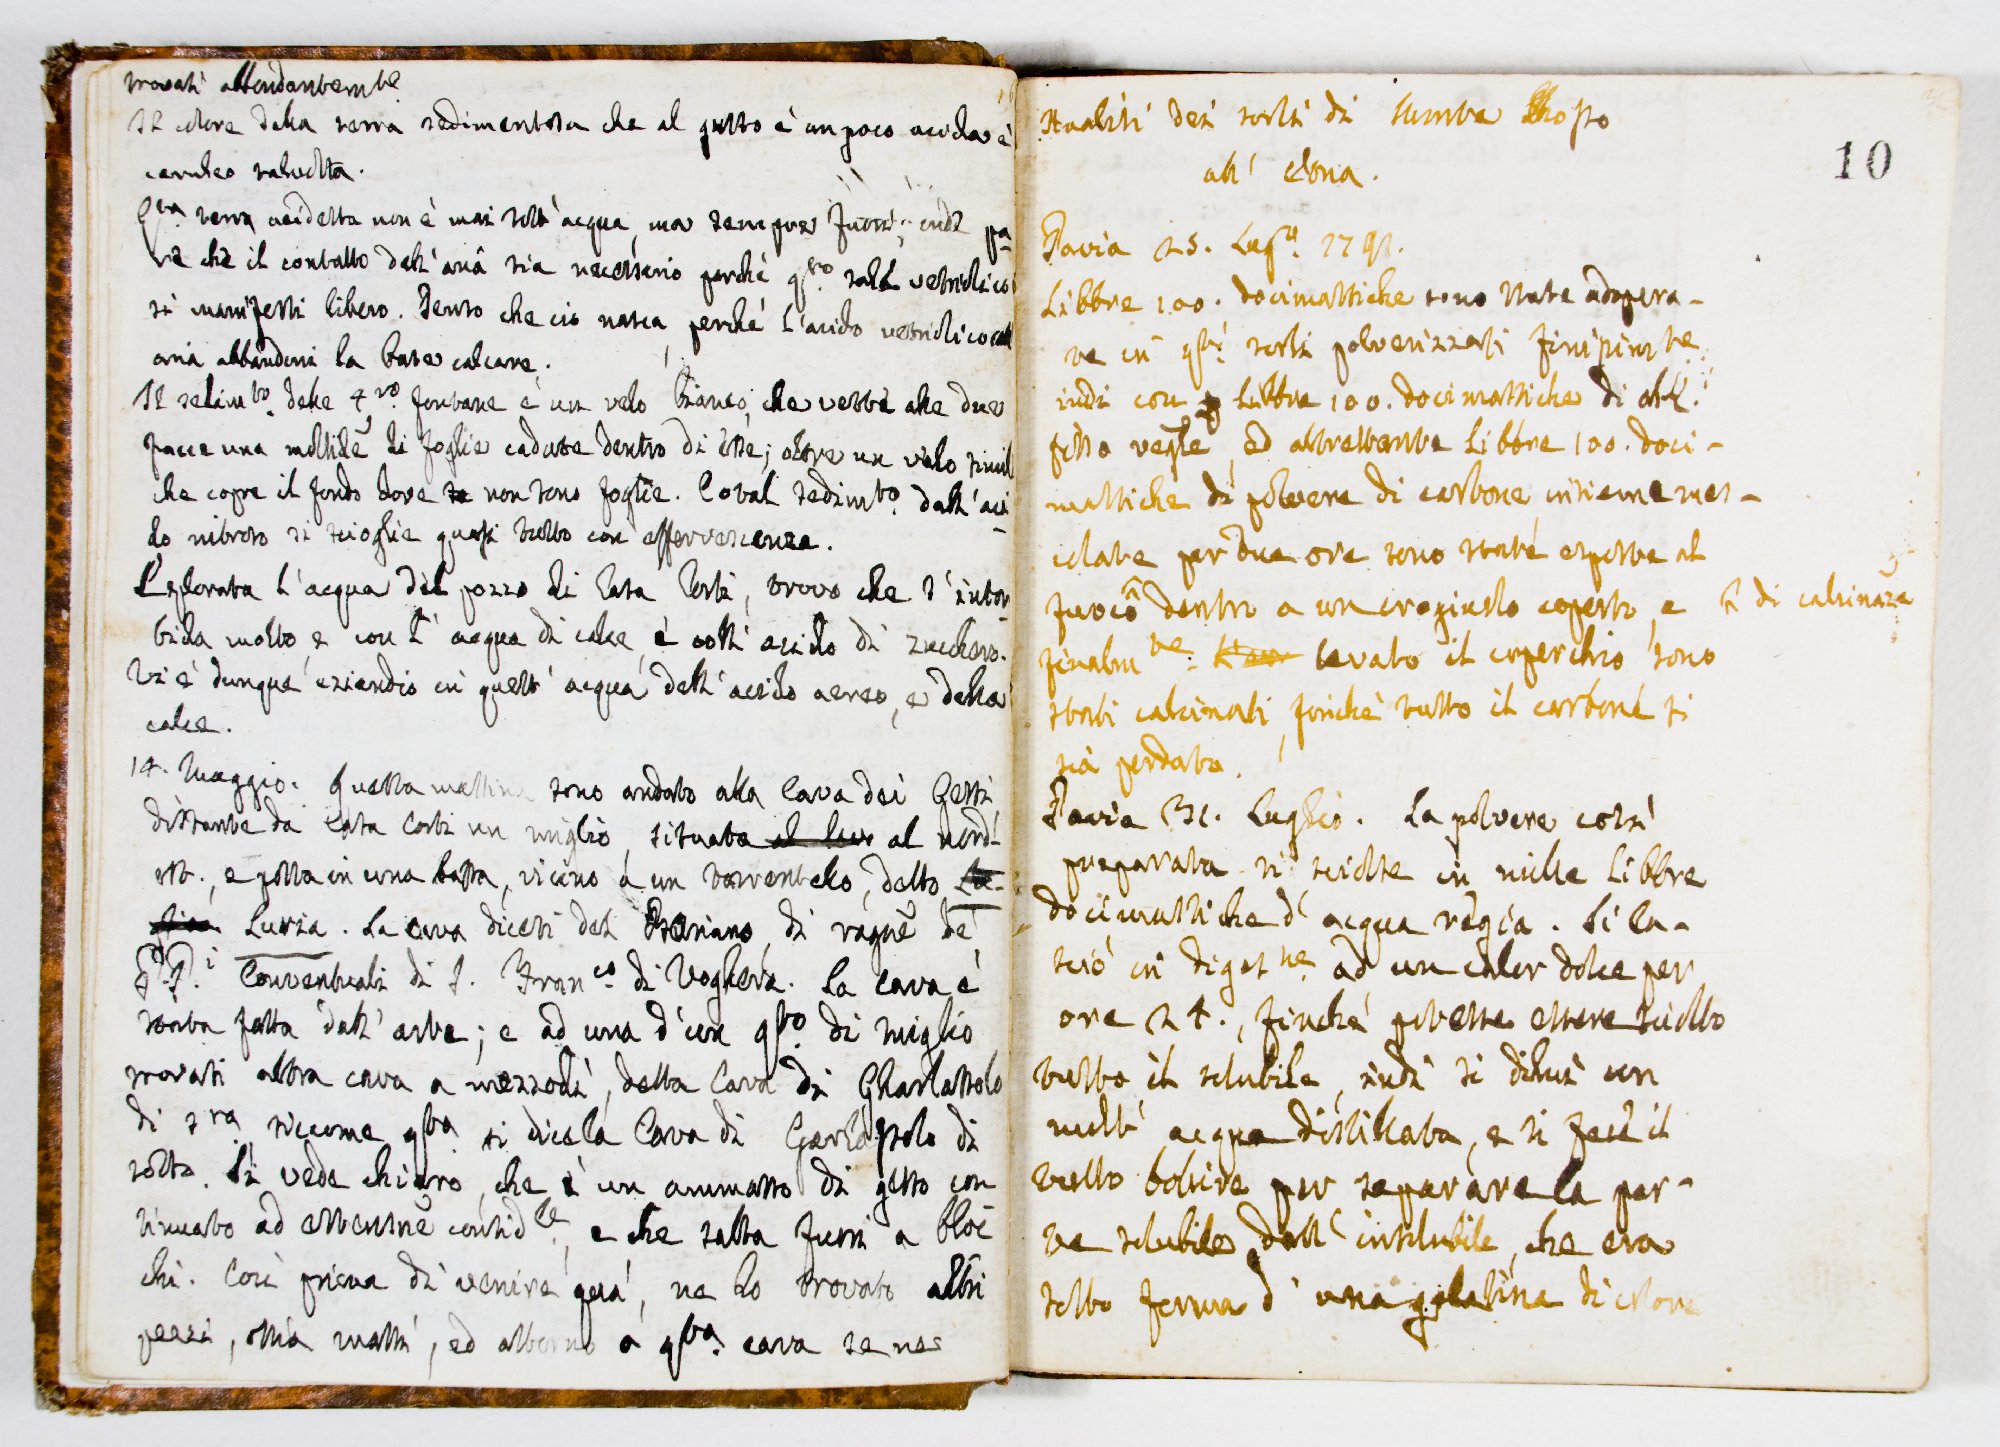 trovati abbondantemte
Il colore della terra sedimentosa che al gusto è un poco acida è
ceruleo
Qta terra acidetta non è mai sott'acqua, ma sempre fuori; indi pa-
re che il contatto dell'aria sia necessario perchè qsto vetriolico
si manifesti libero. Penso che ciò nasca, perchè l'acido vetriolico
aria abbandoni la base calcare.
Il sedimto delle 4ro fontane è un velo bianco, che veste alle due
facce una moltitne di foglie cadute dentro di esse; oltre un velo simil
che copre il fondo dove non sono foglie. Coval sedimto dall'aci-
do nitroso si scioglie quasi tutto con effervescenza.
Esplorata l'acqua del pozzo di Casa Corti, trovo che s'intor
bida molto e con l'acqua di calce, e coll' acido di zucchero.
Vi è dunque eziandio in quest'acqua dell'acido aereo, e della
calce.
14. Maggio. Questa mattina sono andato alla Cava dei Gessi
distante da Casa Corti un miglio, situata al nord-
est., e posta in una bassa, vicino a un torrentello, detto
Luria. La cava dicesi del di ragne de'
P.P.i Conventuali di S. Franco di Voghera. La cava è
stata fatta dall'arte; e ad una d'un qto di miglio
trovasi altra cava a mezzodì, detta Cava di Gharlassolo
di sra, siccome qta si dice la Cava di Garlassolo di
sotto. Si vede chiaro, che è un ammasso di gesso con
tinuato ad estensne considle, e che salta fuori a bloc
chi. Così prima di venire quà, ne ho trovato altri
pezzi, ossia massi, ed attorno a qta cava se ne
10
Analisi dei sorli di rosso
all' elona.
Pavia 25. Lugo. 1791.
Libbre 100. docimastiche sono state adopera-
te in qti sorli polverizzati finissimte
indi con Libbre 100. docimastiche di alk.i
fisso vegle, ed altrettante Libbre 100. doci-
mastiche di polvere di carbone insieme mes-
colate per due ore sono state esposte al
fuoco dentro a un crogiuolo coperto, e
finalmte levato il coperchio sono
stati calcinati, finchè tutto il carbone si
sia perduto.
Pavia 31. Luglio. La polvere così
preparata si sciolse in mille Libbre
docimastiche d'acqua regia. Si la-
sciò in digestne ad un calor dolce per
ore 24., finchè potesse essere sciolto
tutto il solubile, indi si diluì con
molt' acqua distillata, e si fece il
tutto bollire per separare la par-
te solubile dall'insolubile, che era
sotto forma d'una gelatina di colore